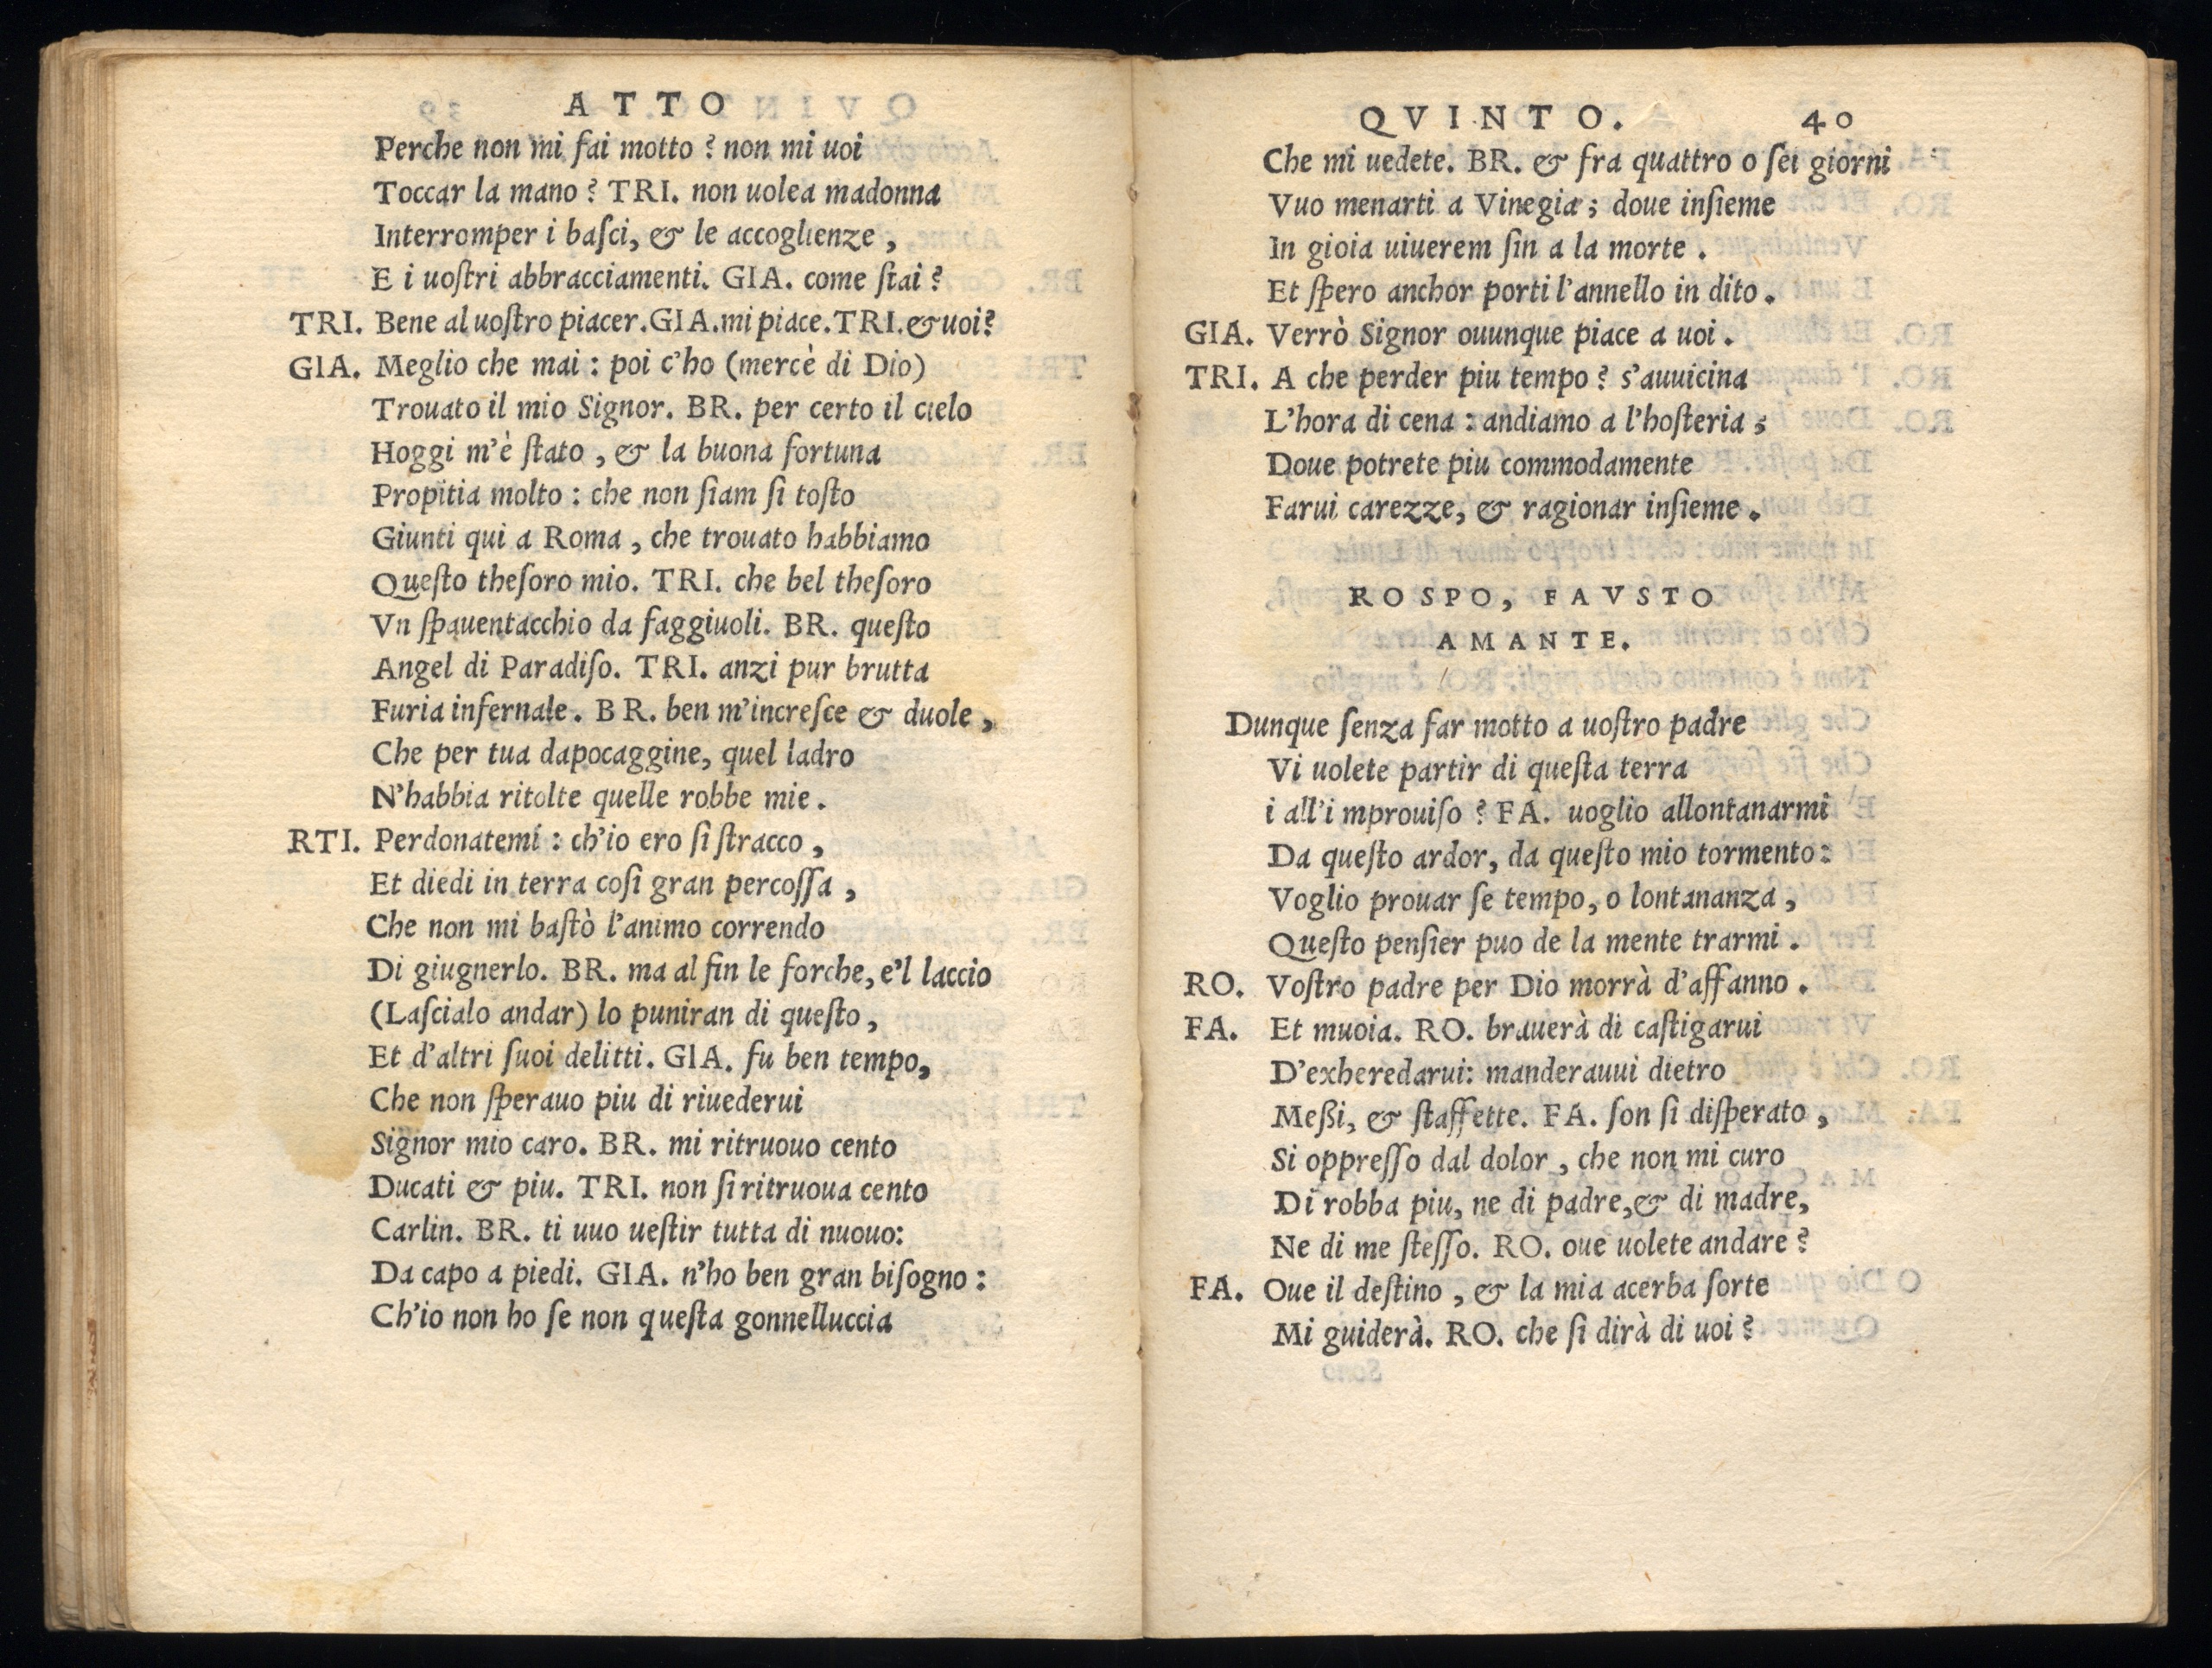 ATTO
Perche non mi fai motto? non mi uoi
Toccar la mano? TRI. non uolea madonna
Interromper i baſci, & le accoglienze,
E i uoſtri abbracciamenti. GIA. come ſtai?
TRI. Bene al uoſtro piacer. GIA. mi piace. TRI. & uoi?
GIA. Meglio che mai: poi c'ho (mercè di Dio)
Trouato il mio Signor. BR. per certo il cielo
Hoggi m'è ſtato, & la buona fortuna
Propitia molto: che non ſiam ſi toſto
Giunti qui a Roma, che trouato habbiamo
Queſto theſoro mio. TRI. che bel theſoro
Vn ſpauentacchio da faggiuoli. BR. queſto
Angel di Paradiſo. TRI. anzi pur brutta
Furia infernale. BR. ben m'increſce & duole,
Che per tua dapocaggine, quel ladro
N'habbia ritolte quelle robbe mie.
RTI. Perdonatemi: ch'io ero ſi ſtracco,
Et diedi in terra coſi gran percoſſa,
Che non mi baſtò l'animo correndo
Di giugnerlo. BR. ma al fin le forche, e'l laccio
(Laſcialo andar) lo puniran di queſto,
Et d'altri ſuoi delitti. GIA. fu ben tempo,
Che non ſperauo piu di riuederui
Signor mio caro. BR. mi ritruouo cento
Ducati & piu. TRI. non ſi ritruoua cento
Carlin. BR. ti uuo ueſtir tutta di nuouo:
Da capo a piedi. GIA. n'ho ben gran biſogno:
Ch'io non ho ſe non queſta gonnelluccia
QVINTO. 40
Che mi uedete. BR. & fra quattro o ſei giorni
Vuo menarti a Vinegia; doue inſieme
In gioia uiuerem ſin a la morte.
Et ſpero anchor porti l'annello in dito.
GIA. Verrò Signor ouunque piace a uoi.
TRI. A che perder piu tempo? s'auuicina
L'hora di cena: andiamo a l'hoſteria;
Doue potrete piu commodamente
Farui carezze, & ragionar inſieme.
ROSPO, FAVSTO
AMANTE.
Dunque ſenza far motto a uoſtro padre
Vi uolete partir di queſta terra
i all'i mprouiſo? FA. uoglio allontanarmi
Da queſto ardor, da queſto mio tormento:
Voglio prouar ſe tempo, o lontananza,
Queſto penſier puo de la mente trarmi.
RO. Voſtro padre per Dio morrà d'affanno.
FA. Et muoia. RO. brauerà di caſtigarui
D'exheredarui: manderauui dietro
Meßi, & ſtaffette. FA. ſon ſi diſperato,
Si oppreſſo dal dolor, che non mi curo
Di robba piu, ne di padre, & di madre,
Ne di me ſteſſo. RO. oue uolete andare?
FA. Oue il deſtino, & la mia acerba ſorte
Mi guiderà. RO. che ſi dirà di uoi?